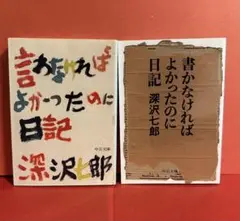 言わなければ
よかったのに
日記
深沢七郎
中公文庫
書かなければ
よかったのに
日記
深沢七郎
中公文庫